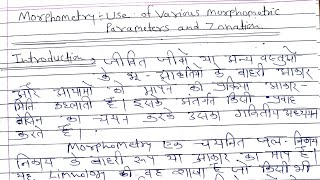 Morphometry: Use of Various Morphometric
Parameters and Zonation.
Introduction, जीवित जीवों या अन्य वस्तुओं
के भू-आकृतियों के बाहरी आकार
और आयामों को मापने की प्रक्रिया आकार-
मिति कहलाती है। इसके अन्तर्गत किसी प्रवाह
बेसिन का चयन करके उसका गणितीय अध्ययन
करते हैं।
Morphometry एक चयनित जल-निकाय
निकाय के बाहरी रूप या आकार का माप है।
यह Limnology की वह शाखा है जो किसी भी